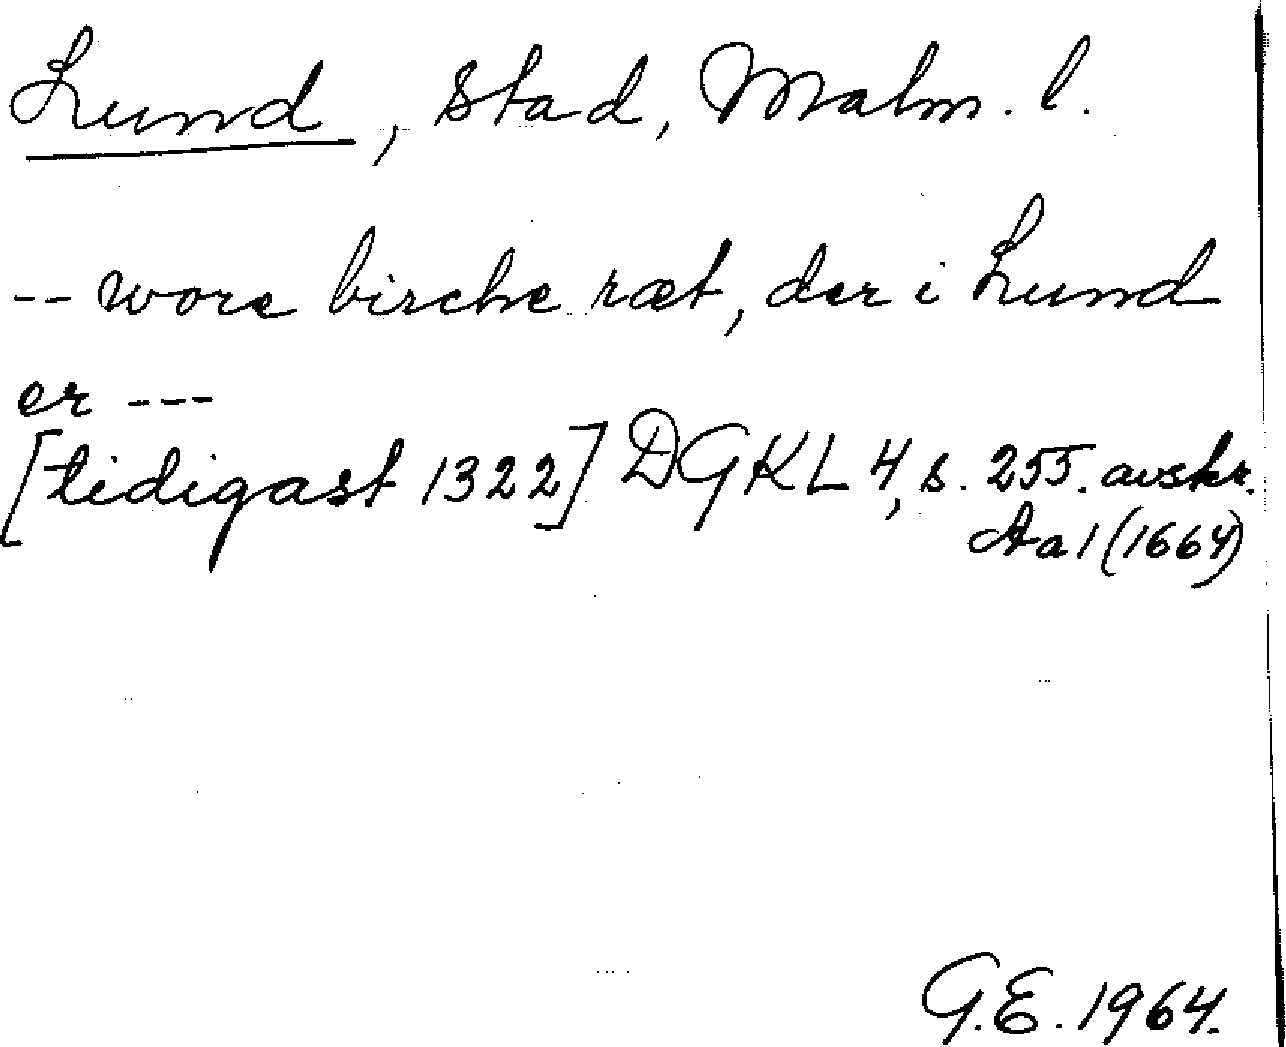 Lund, stad, Malm. l.
-- wore birche ræt, der i Lund
er ---
[tidigast 1322] DGKL 4, s. 255. avskr.
Aa 1 (1664)
G.E. 1964.